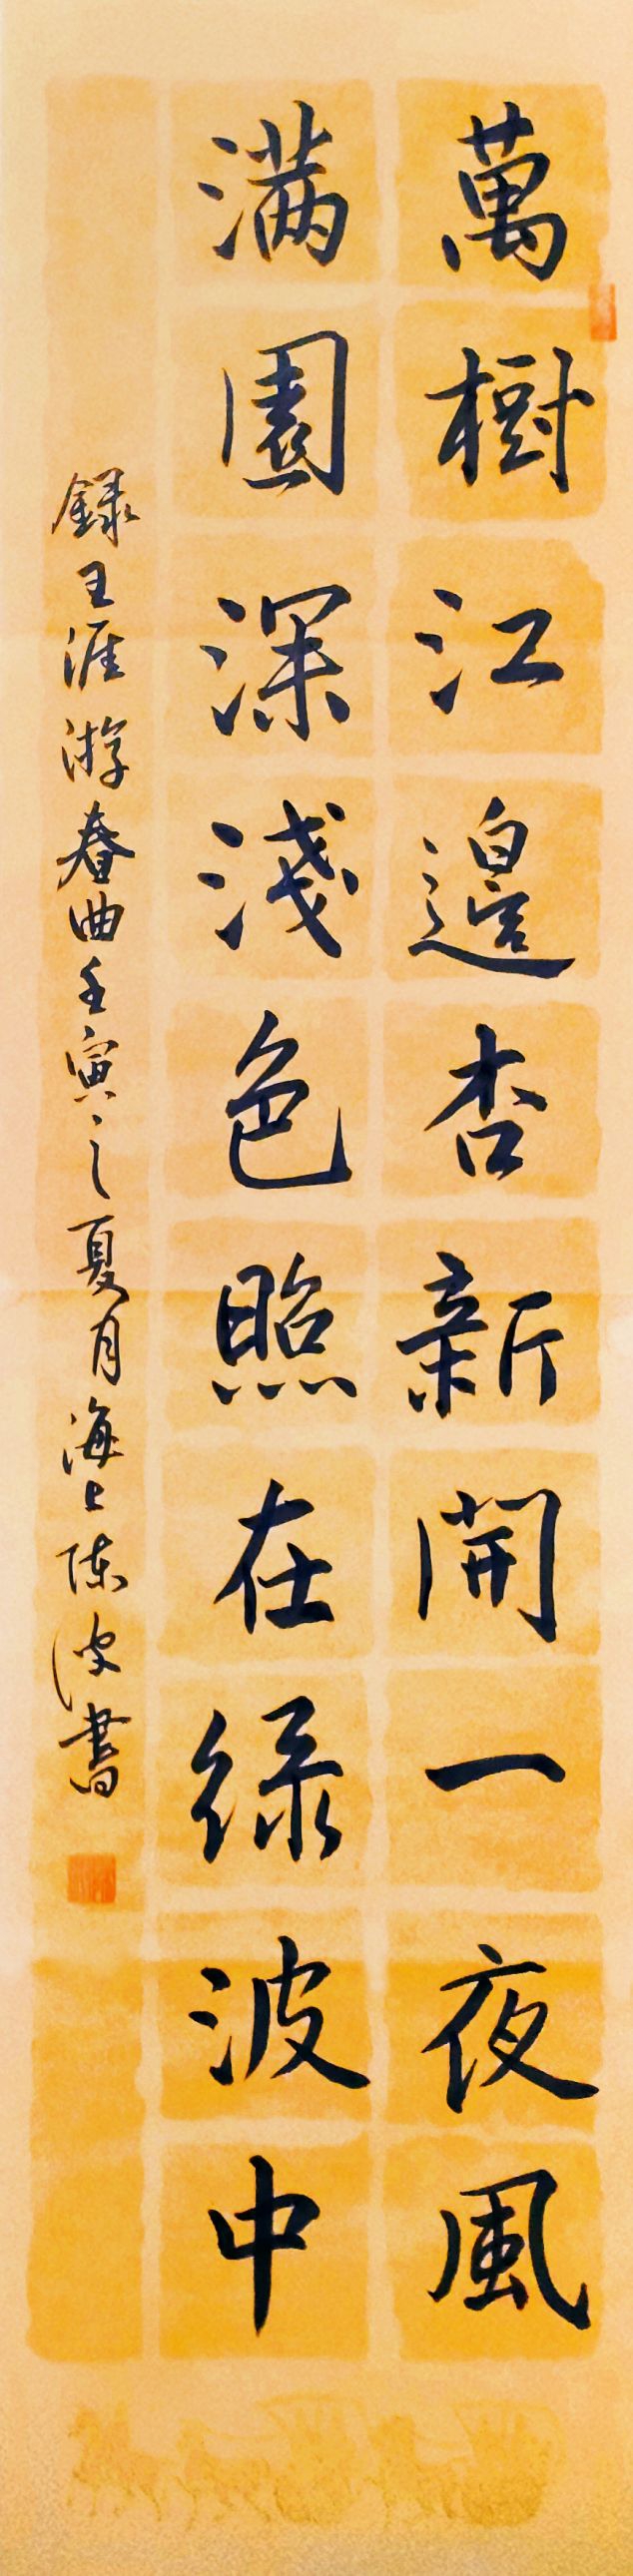 萬樹江邊杏新開一夜風
满園深淺色照在緑波中
録王涯游春曲壬寅之夏月海上陈波書